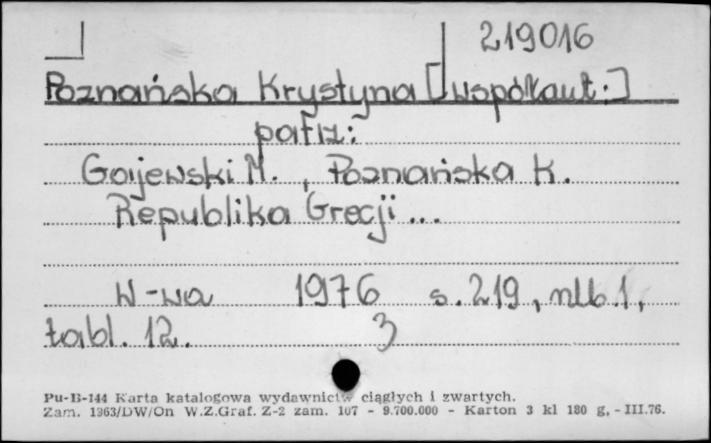 219016
Poznańska Krystyna [współaut.]
patrz:
Gajewski M., Poznańska K.
Republika Grecji...
W-wa 1976 s. 219, nlb. 1,
tabl. 12. 3
Pu-B-144 Karta katalogowa wydawnictw ciągłych i zwartych.
Zam. 1363/DW/On W.Z.Graf. Z-2 zam. 107 - 9.700.000 - Karton 3 kl 180 g, - III.76.